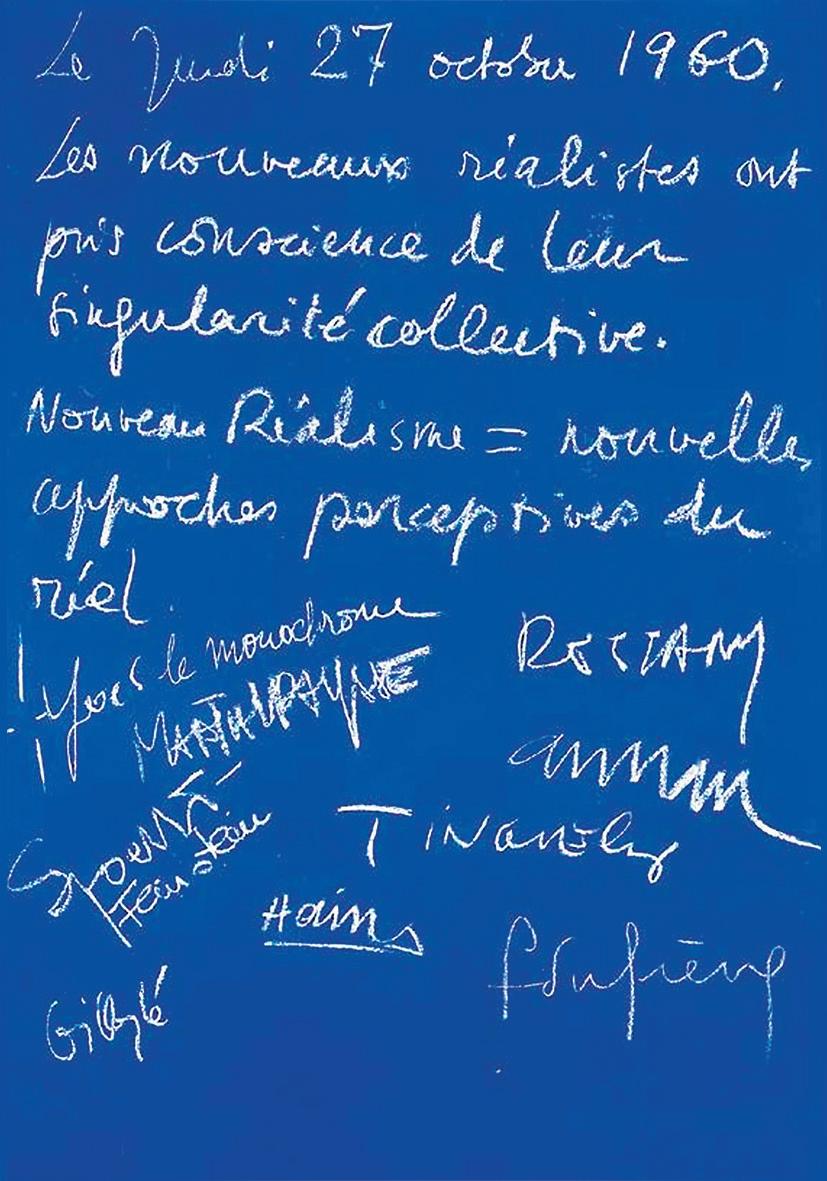 Le Jeudi 27 octobre 1960.
Les nouveaux réalistes ont
pris conscience de leur
singularité collective.
Nouveau Réalisme = nouvelles
approches perceptives du
réel.
Yves le monochrome
RESTANY
Martial RAYSSE
arman
Spoerri
TINGUELY
Hains
Dufrêne
Villeglé